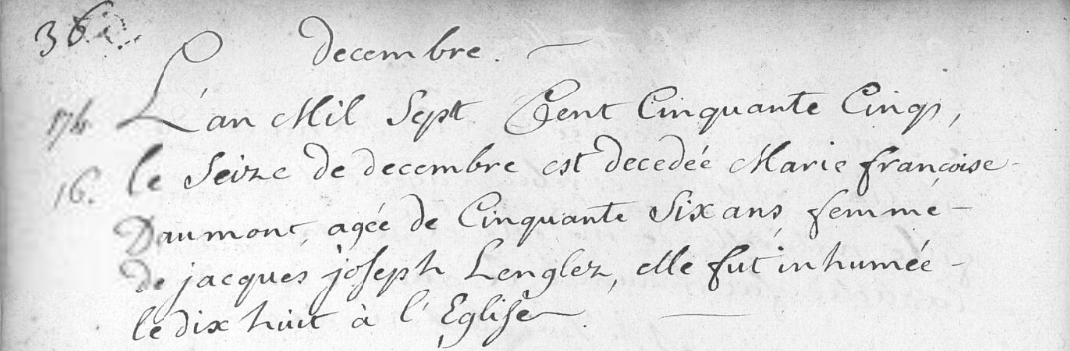 decembre.
174. L'an Mil Sept Cent Cinquante Cinq,
16. le Seize de decembre est decedée Marie françoise
Daumont, agée de Cinquante Six ans, femme
de jacques joseph Lenglez, elle fut inhumée
le dix huit à l'Eglise